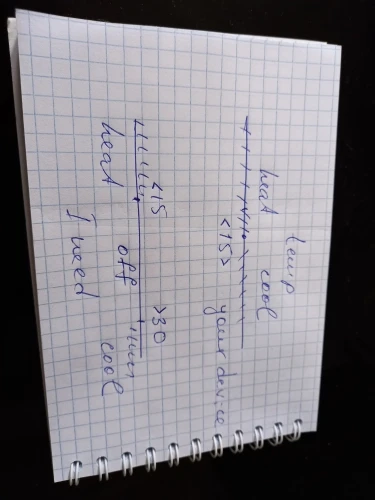 temp
heat cool
<15> your device
<15 >30
heat off cool
I need